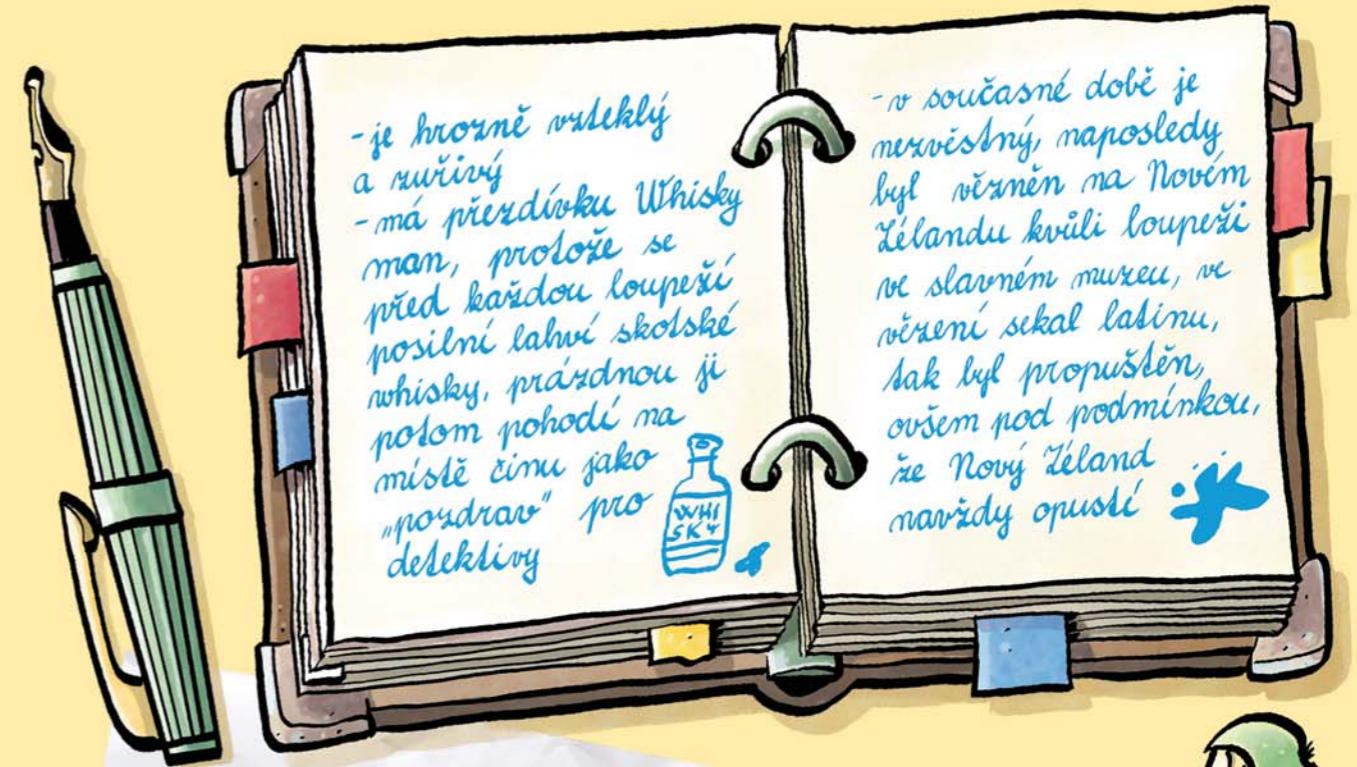 - je hrozně vzteklý
a zuřivý
- má přezdívku Whisky
man, protože se
před každou loupeží
posilní lahví skotské
whisky, prázdnou ji
potom pohodí na
místě činu jako
„pozdrav" pro
detektivy
WHI
SKY
- v současné době je
nezvěstný, naposledy
byl vězněn na Novém
Zélandu kvůli loupeži
ve slavném muzeu, ve
vězení sekal latinu,
tak byl propuštěn,
ovšem pod podmínkou,
že Nový Zéland
navždy opustí